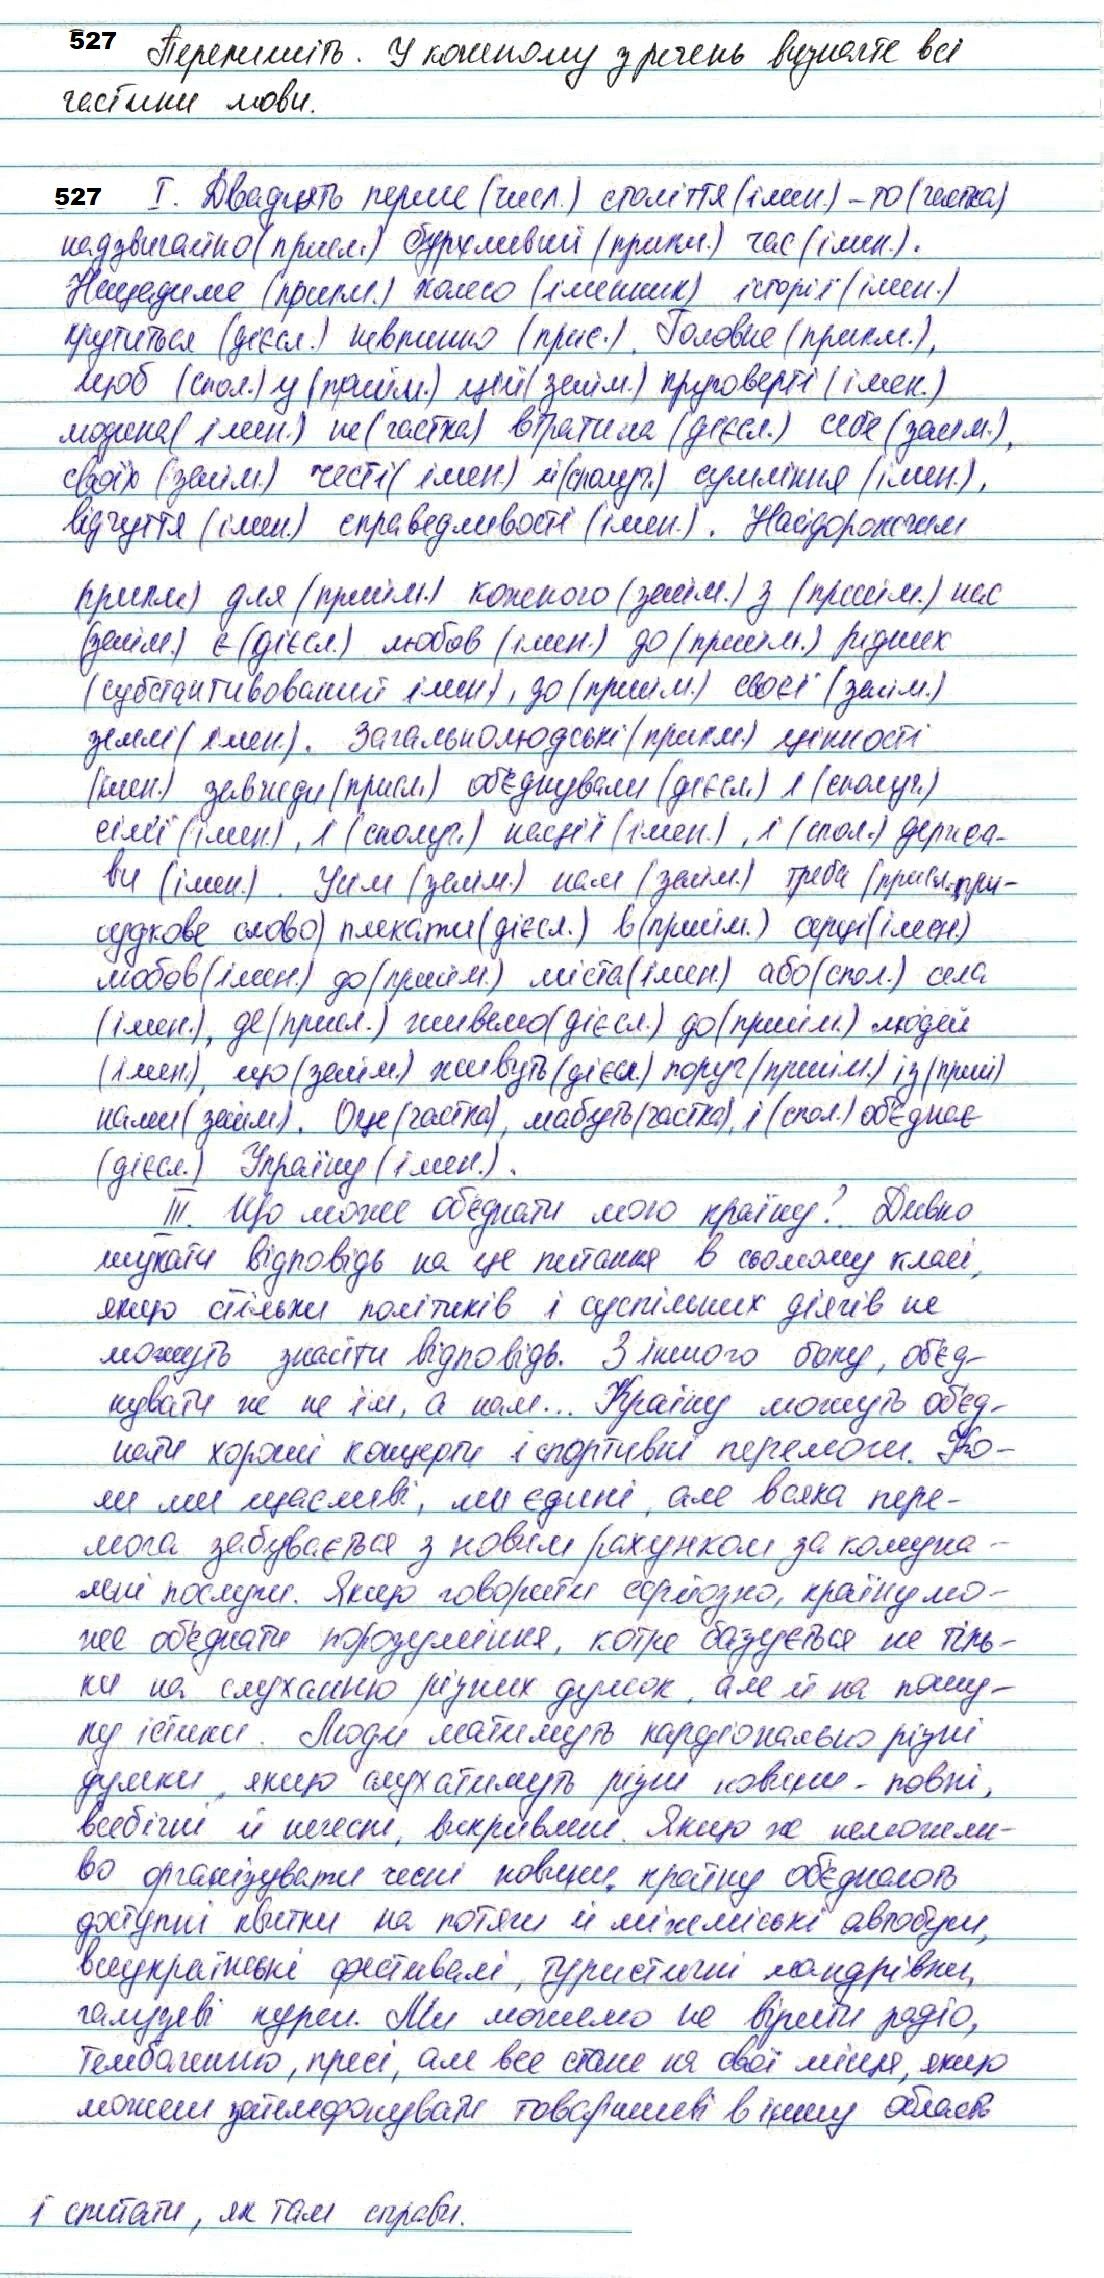 527 Перепишіть. У кожному з речень визначте всі
частини мови.
527 I. Двадцять перше (числ.) століття (імен.) – то (частка)
надзвичайно (присл.) бурхливий (прикм.) час (імен.).
Нещадиме (прикм.) колесо (іменник) історії (імен.)
крутиться (дієсл.) невпинно (прис.). Головне (прикм.),
щоб (спол.) у (прийм.) цій (займ.) круговерті (імен.)
людина (імен.) не (частка) втратила (дієсл.) себе (займ.),
своїх (займ.) честі (імен.) й (сполуч.) сумління (імен.),
відчуття (імен.) справедливості (імен.). Найдорожчим
прикм) для (прийм.) кожного (займ.) з (прийм.) нас
(займ.) є (дієсл.) любов (імен.) до (прийм.) рідних
(субстантивований імен), до (прийм.) своєї (займ.)
землі (імен.). Загальнолюдські (прикм.) цінності
(імен.) завжди (присл.) об'єднували (дієсл.) і (сполуч.)
сім'ї (імен.), і (сполуч.) нації (імен.), і (спол.) держа-
ви (імен.). Усім (займ.) нам (займ.) треба (присл. при-
судкове слово) плекати (дієсл.) в (прийм.) серці (імен)
любов (імен.) до (прийм.) міста (імен.) або (спол.) села
(імен.), де (присл.) живемо (дієсл.) до (прийм.) людей
(імен.), що (займ.) живуть (дієсл.) поруч (прийм.) із (прий)
нами (займ). Оце (частка), мабуть (частка), і (спол.) об'єднає
(дієсл.) Україну (імен.).
III. Що може об'єднати мою країну? Дивно
шукати відповідь на це питання в сьомому класі,
якщо стільки політиків і суспільних діячів не
можуть знайти відповідь. З іншого боку, об'єд-
нувати ж не їм, а нам... Країну можуть об'єд-
нати хороші концерти і спортивні перемоги. Ко-
ли ми щасливі, ми єдині, але всяка пере-
мога забувається з новим рахунком за комуна-
льні послуги. Якщо говорити серйозно, країну мо-
же об'єднати порозуміння, котре базується не тіль-
ки на слуханню різних думок, але й на пошу-
ку істини. Люди матимуть кардіонально різні
думки, якщо слухатимуть різні новини - повні,
всебічні й нечесні, викривлені. Якщо ж неможли-
во організувати чесні новини, країну об'єднають
доступні квитки на потяги й міжміські автобуси,
всеукраїнські фестивалі, туристичні мандрівки,
галузеві курси. Ми можемо не вірити радіо,
телебаченню, пресі, але все стане на свої місця, якщо
можеш зателефонувати товаришеві в іншу область
і спитати, як там справи.